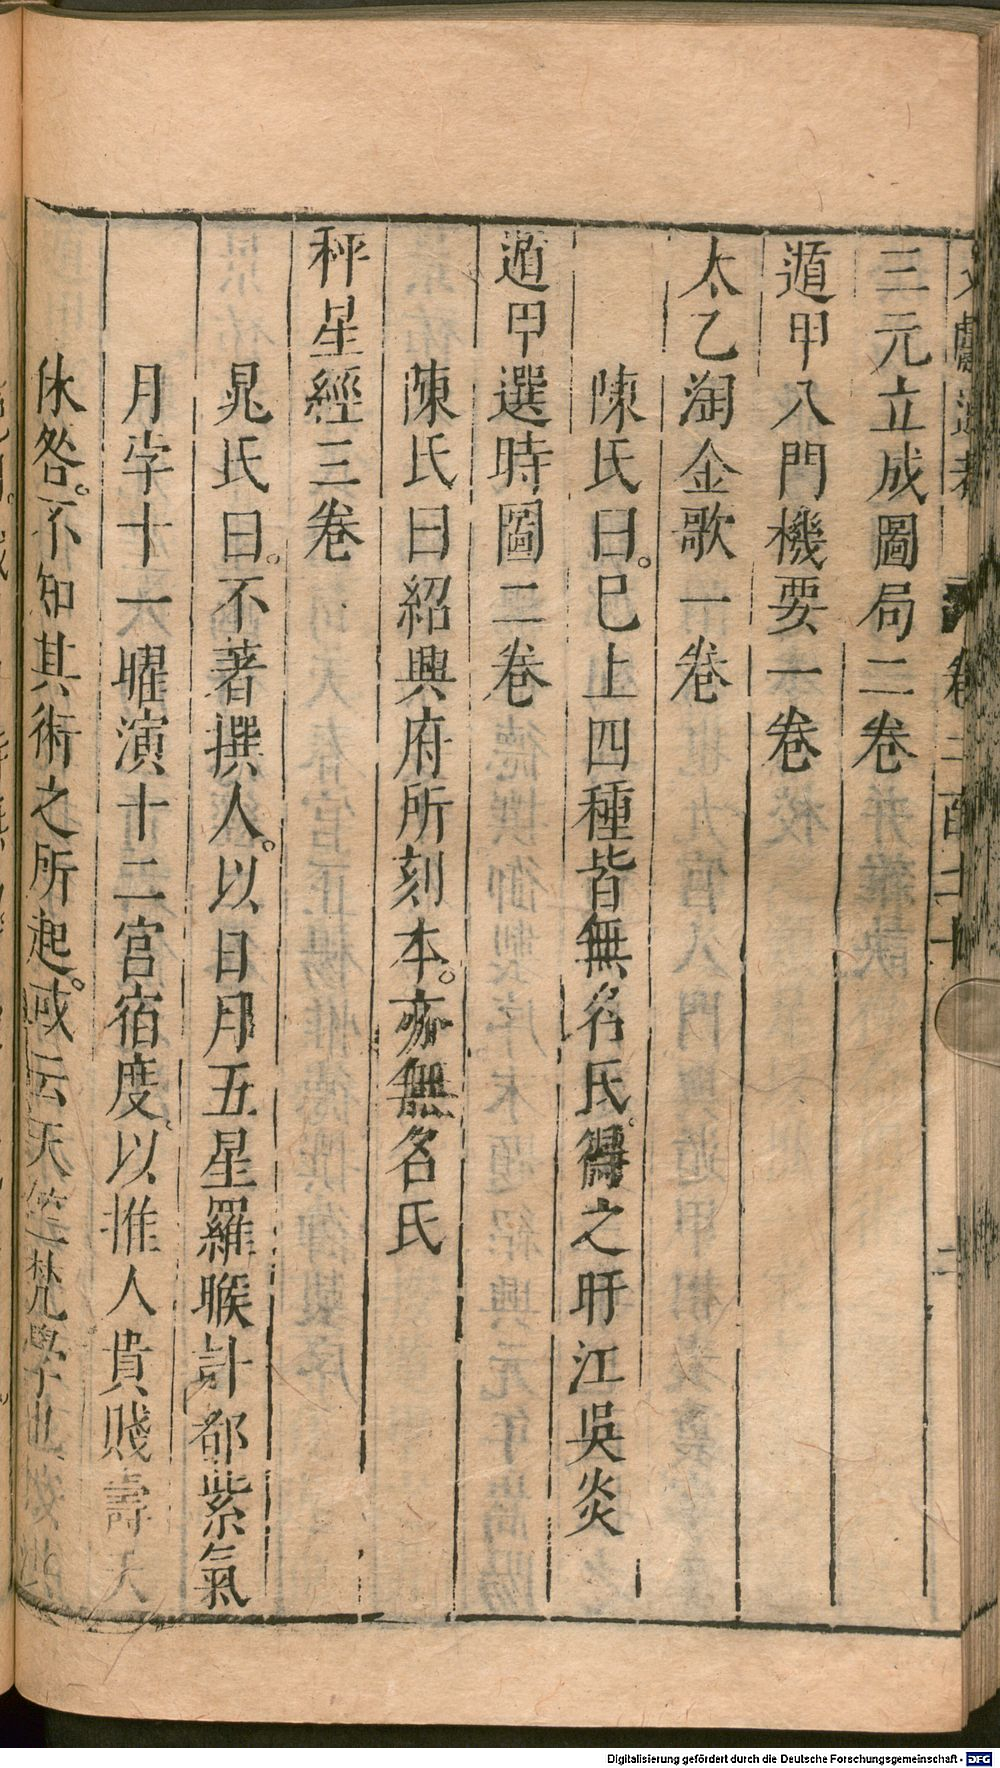 文獻通考 卷二百二十 二
三元立成圖局二卷
遁甲八門機要一卷
太乙淘金歌一卷
陳氏曰。已上四種皆無名氏。得之盱江吳炎
遁甲選時圖二卷
陳氏曰紹興府所刻本。亦無名氏
秤星經三卷
晁氏曰。不著撰人。以日月五星羅睺計都紫氣
月孛十一曜演十二宮宿度。以推人貴賤壽夭
休咎。不知其術之所起。或云天竺梵學也
Digitalisierung gefördert durch die Deutsche Forschungsgemeinschaft - DFG